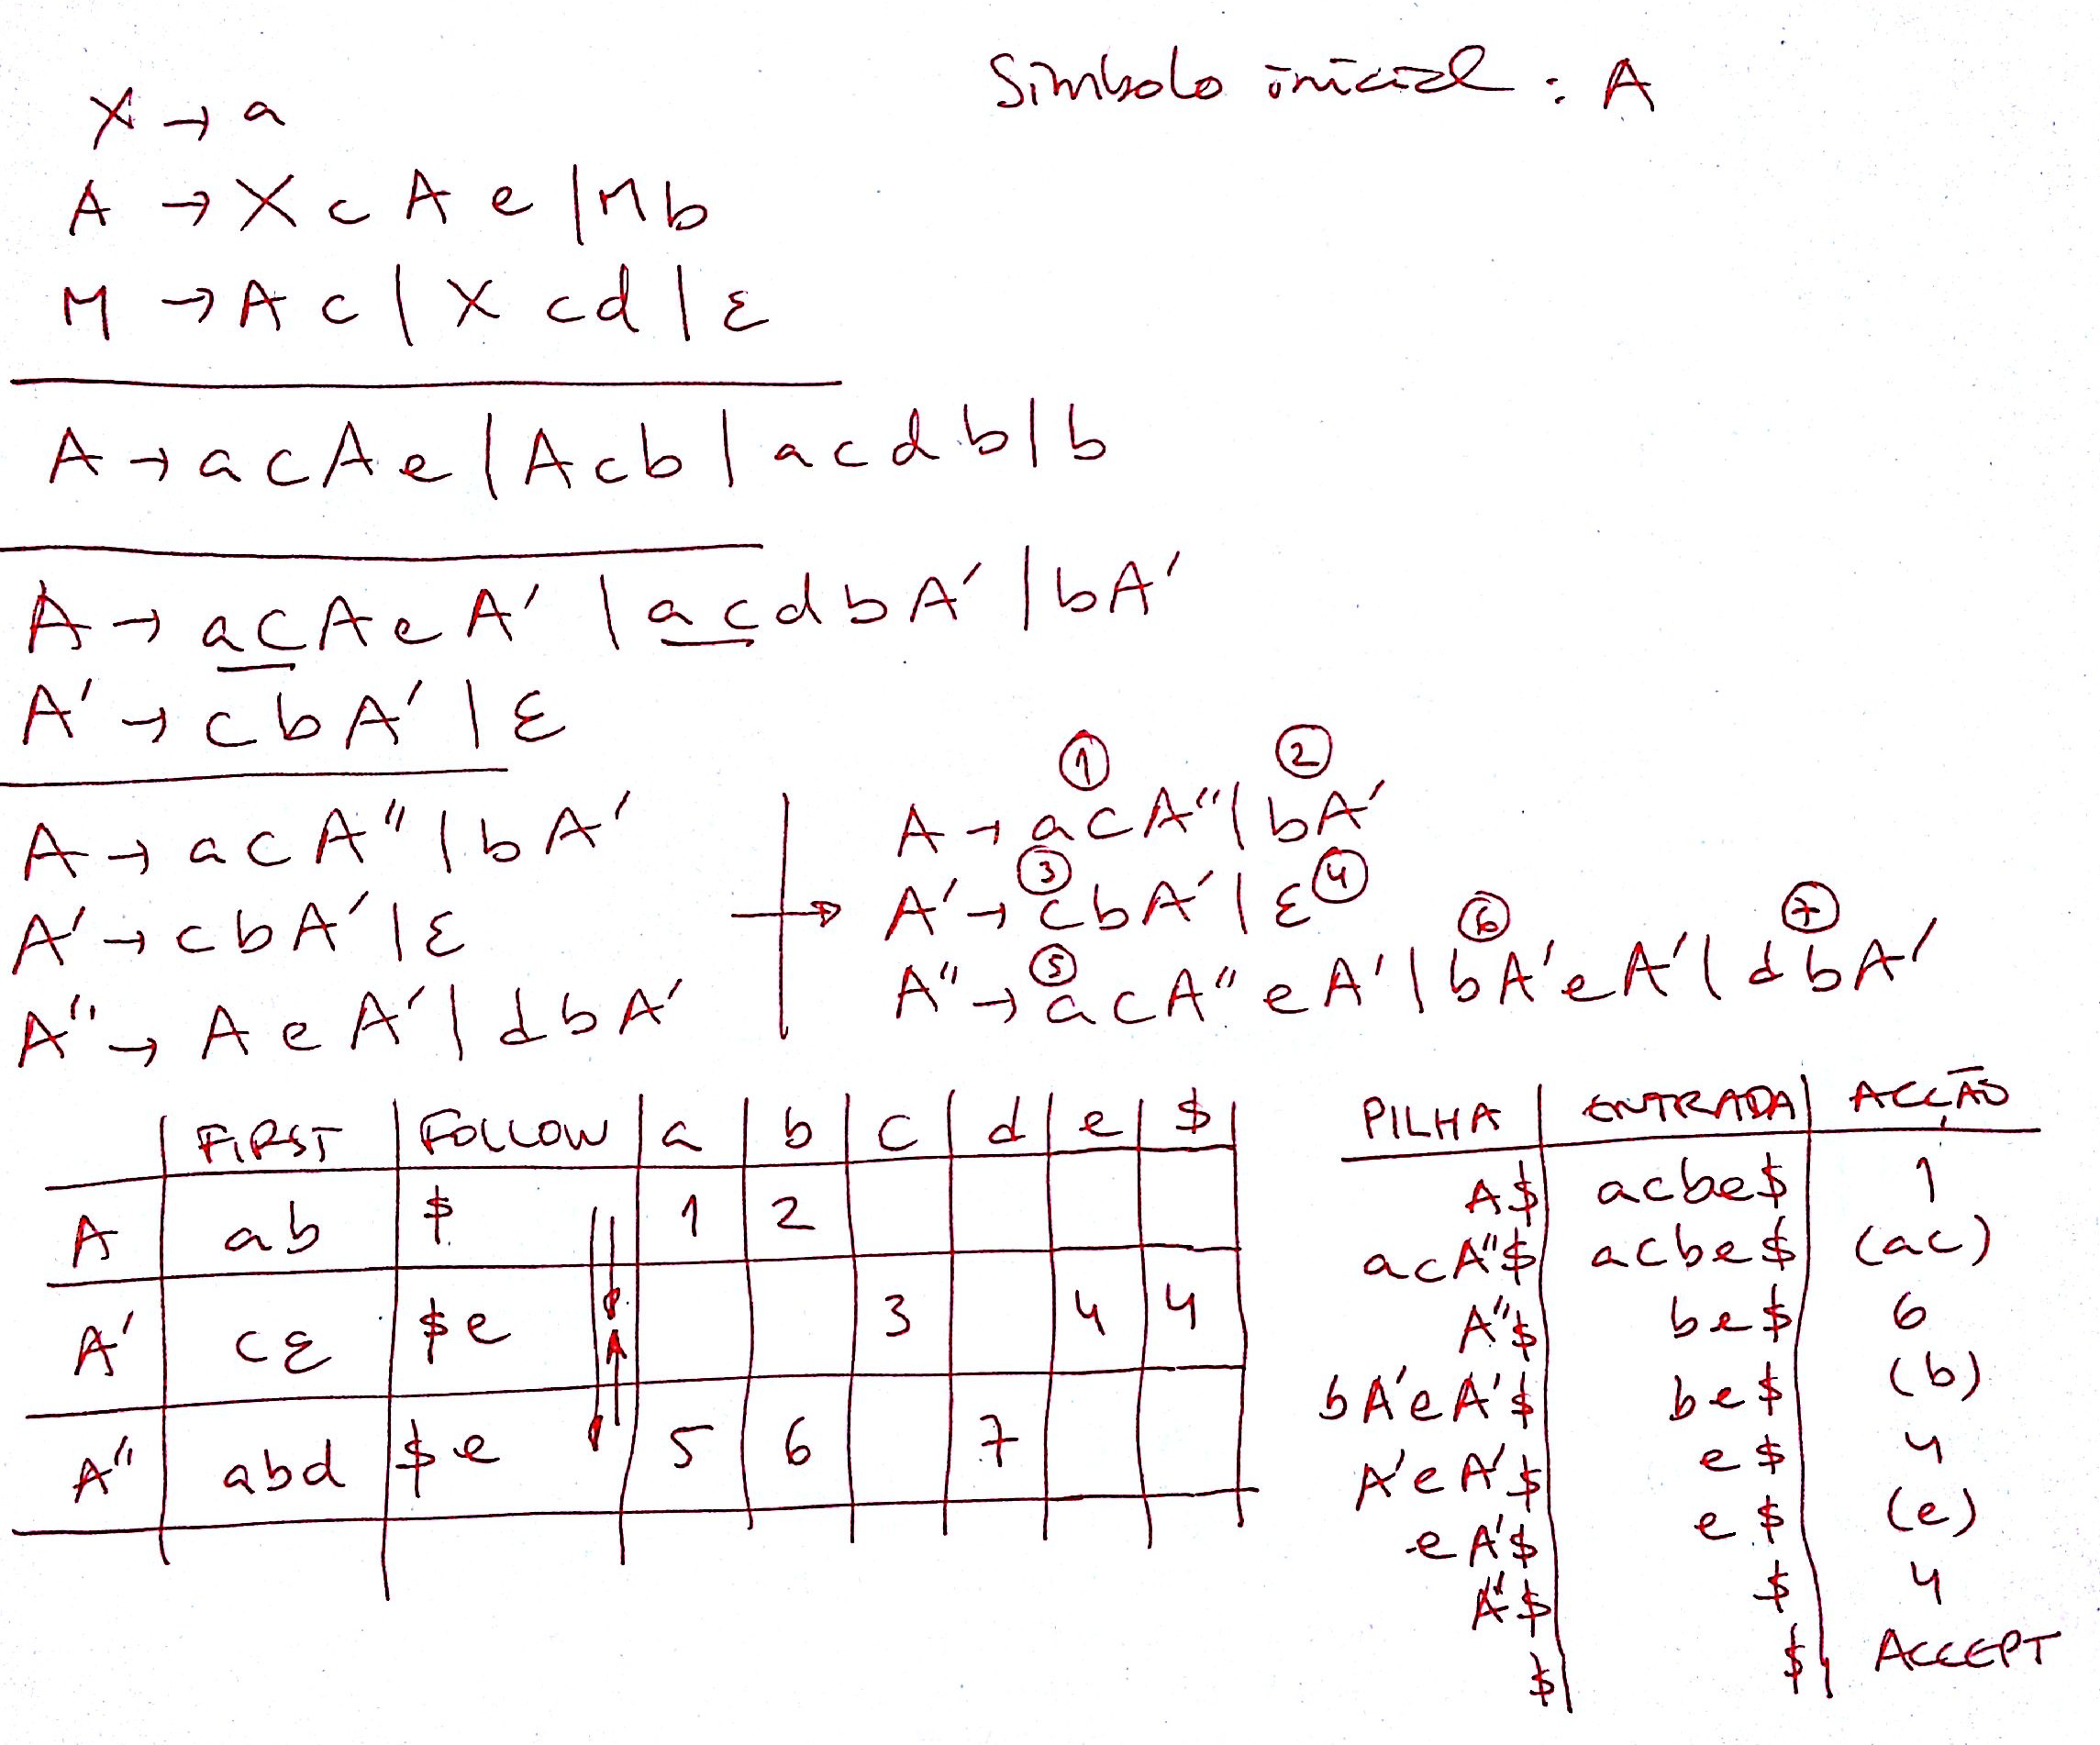 Símbolo inicial : A
X → a
A → X c A e | M b
M → A c | X c d | ε
A → a c A e | A c b | a c d b | b
A → a c A e A' | a c d b A' | b A'
A' → c b A' | ε
A → a c A'' | b A'
A' → c b A' | ε
A'' → A e A' | d b A'
① ②
A → a c A'' | b A'
③ ④
A' → c b A' | ε
⑤ ⑥ ⑦
A'' → a c A'' e A' | b A' e A' | d b A'
FIRST FOLLOW a b c d e $
A ab $ 1 2
A' c ε $ e 3 4 4
A'' abd $ e 5 6 7
PILHA ENTRADA ACÇÃO
A$ acbe$ 1
acA''$ acbe$ (ac)
A''$ be$ 6
bA'eA'$ be$ (b)
A'eA'$ e$ 4
eA'$ e$ (e)
A'$ $ 4
$ $ ACCEPT